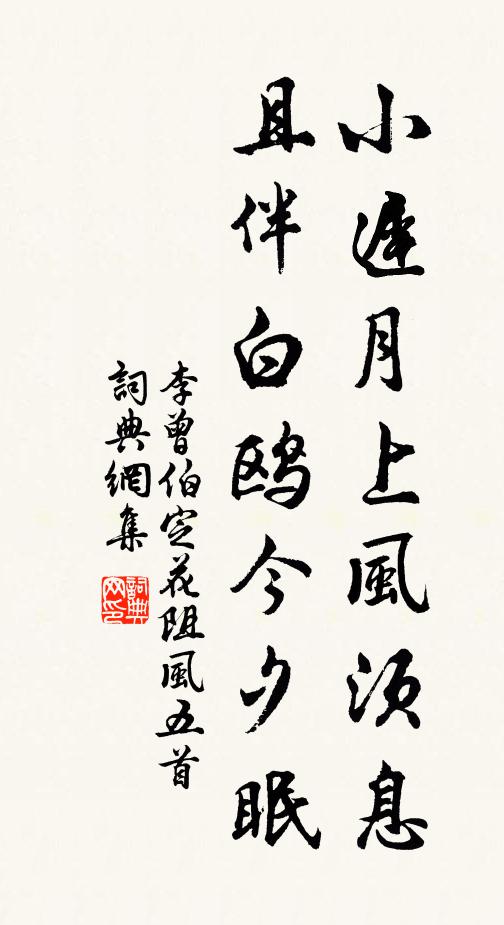 小遲月上風須息
且伴白鷗今夕眠
李曾伯定花阻風五首
詞典網集
詞典網印